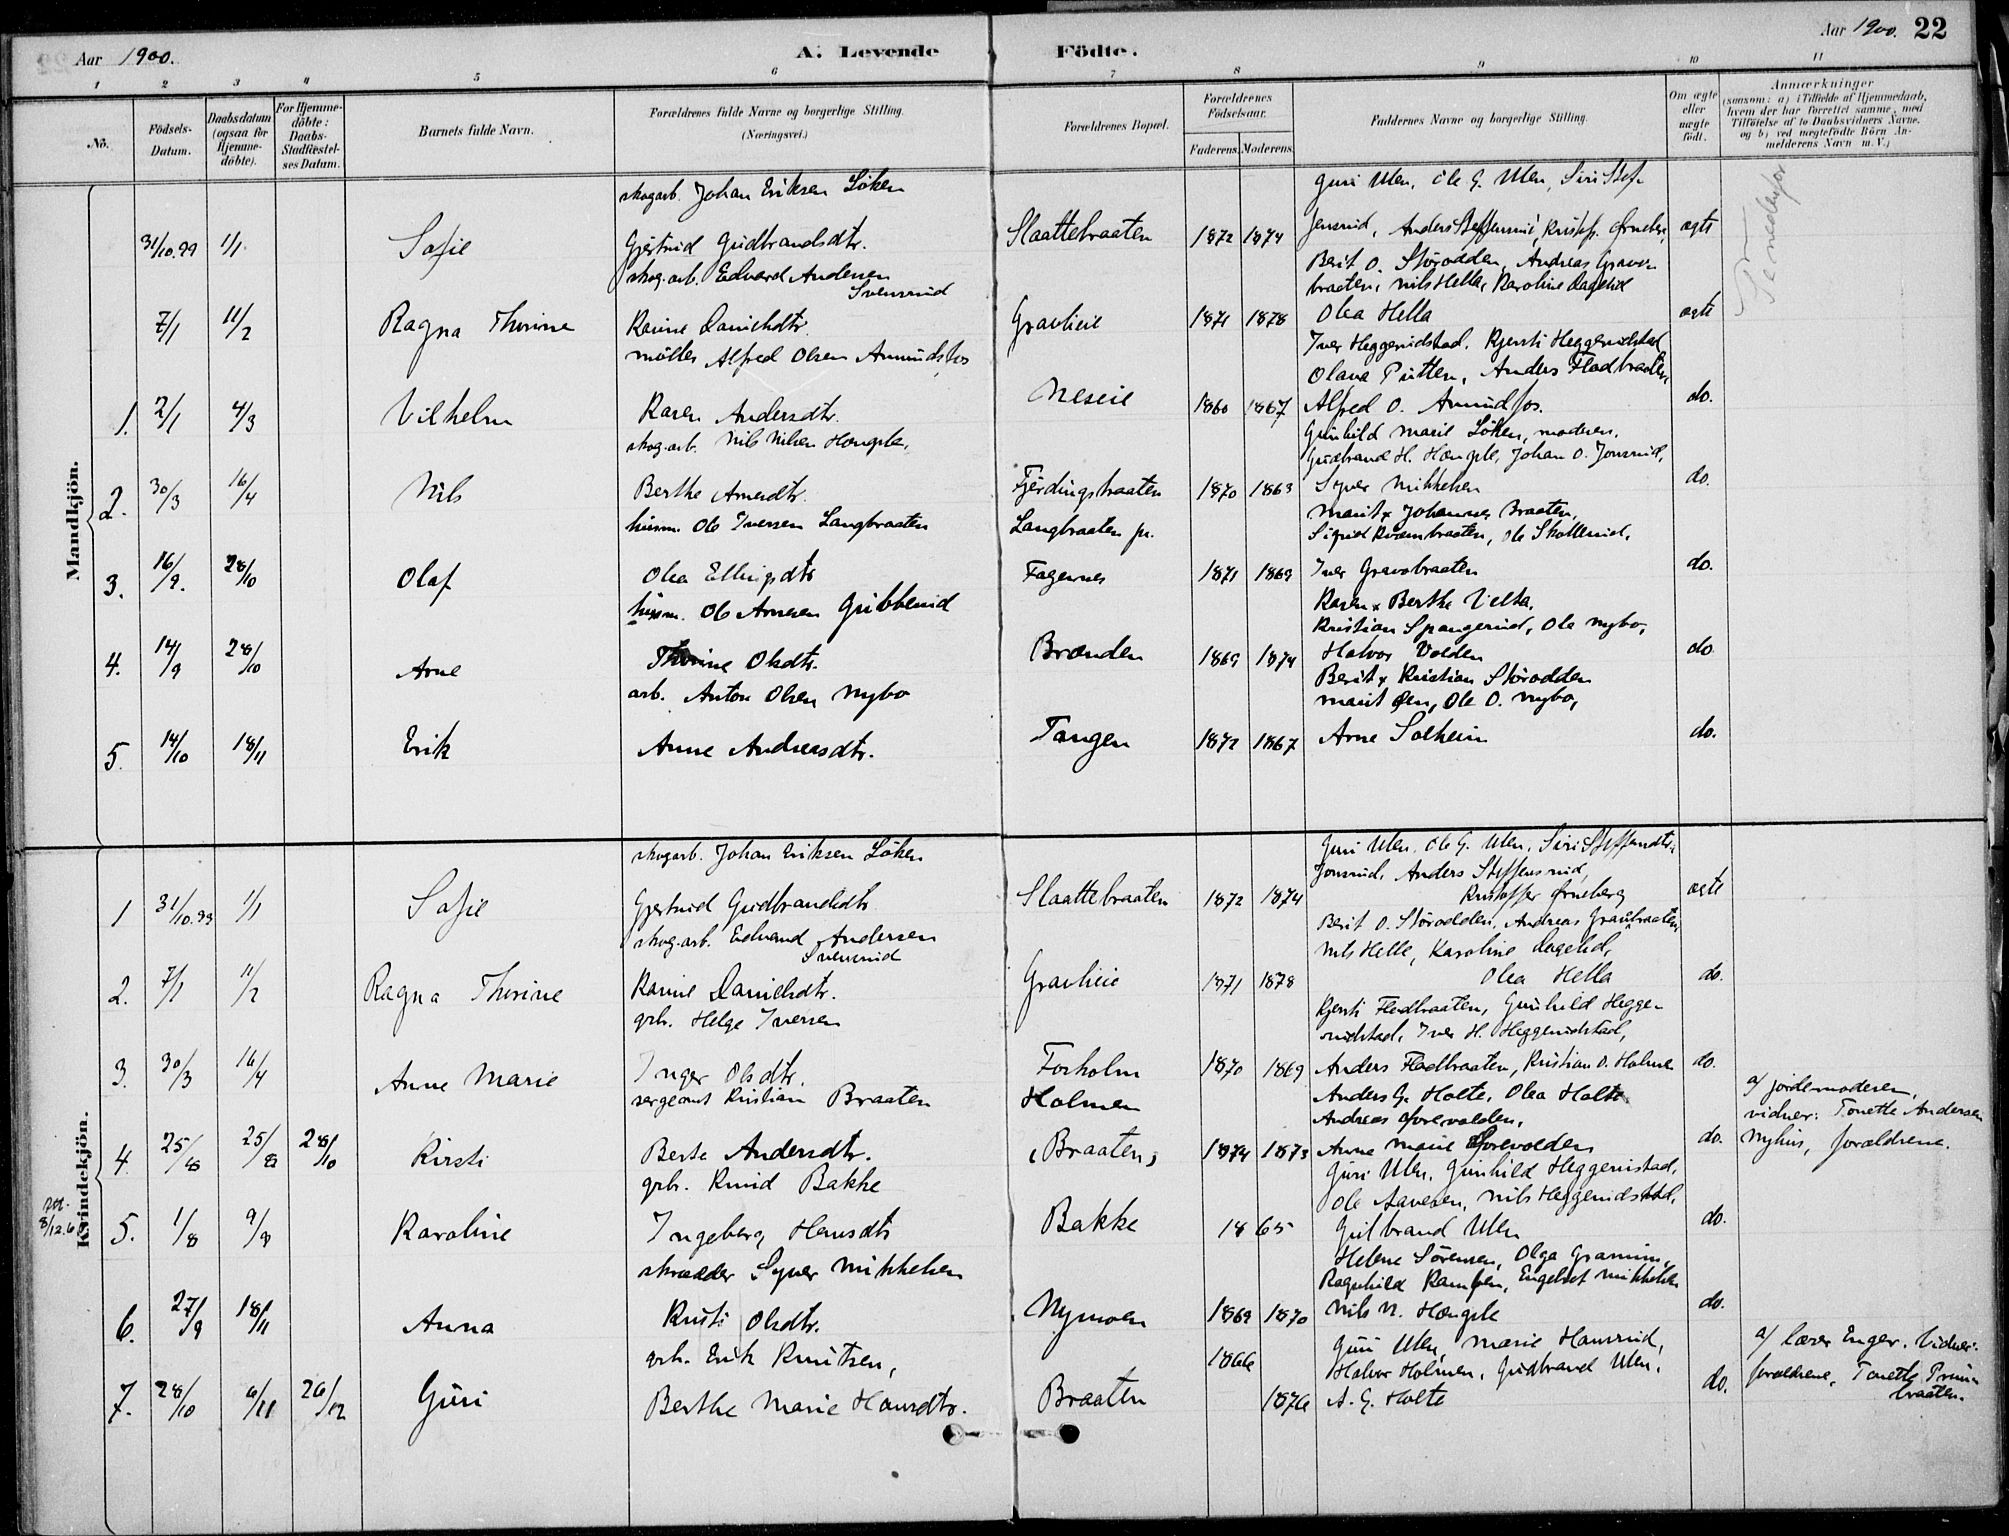 Aar 1900.
A. Levende Födte.
Aar 1900. 22
1 2 3 4 5 6 7 8 9 10 11
No.
Födsels-Datum.
Daabsdatum (ogsaa for Hjemme-döbte).
For Hjemme-döbte: Daabs-Stadfæstel-ses Datum.
Barnets fulde Navn.
Forældrenes fulde Navne og borgerlige Stilling. (Næringsvei.)
Forældrenes Bopæl.
Forældrenes Födselsaar.
Faderens. Moderens.
Faddernes Navne og borgerlige Stilling.
Om ægte eller uægte födt.
Anmærkninger
(saasom: a) i Tilfælde af Hjemmedaab, hvem der har forrettet samme, med Tilföielse af to Daabsvidners Navne. og b) ved uægtefödte Börn An-melderens Navn m. V.)
Mandkjön.
skogarb. Johan Eriksen Löken
Guri Ulen, Ole G. Ulen, Siri Stef-
31/10.99 1/1 Sofie
Gjertrud Gudbrandsdtr.
Slaattebraaten 1872 1874
jensrud, Anders Steffensrud, Kristoff. Örneberg, ægte
Se nedenfor
skog.arb. Edvard Andersen Svensrud
Berit O. Störodden, Andreas Graven
braaten, Nils Hella, Karoline Lagelid
7/1 11/2 Ragna Thorine
Karine Danielsdtr.
Gravlieie 1871 1878 Olea Hella ægte
möller Alfred Olsen Amundsfos
Iver Heggerudstad, Kjersti Heggerudstad
Olava Putten, Anders Flodbraaten,
1. 2/1 4/3 Vilhelm
Karen Andersdtr.
Neseie 1860 1867 Alfred O. Amundfos. do.
skog.arb. Nils Nilsen Hængsle,
Gunhild Marie Löken, moderen.
Gudbrand H. Hængsle, Johan O. Jonsrud,
2. 30/3 16/4 Nils
Berthe Arnesdtr.
Fjerdingsbraaten 1870 1863 Syver Mikkelsen do.
husm. Ole Iversen Langbraaten
Langbraaten pr.
Marit & Johannes Braaten,
Sigrid Kvernbraaten, Ole Skollerud,
3. 16/9. 28/10 Olaf
Olea Ellingsdtr
Fagernes 1871 1869 Iver Gravabraaten do.
husm. Ole Arnesen Gubberud
Karen & Berthe Velta,
Kristian Spangerud, Ole Nybo,
4. 14/9 28/10 Arne
Thorine Olsdtr.
Brænden 1869 1874 Halvor Volden do
arb. Anton Olsen Nybo
Berit & Kristian Störodden
Marit Öen, Ole O. Nybo,
5. 14/10 18/11 Erik
Anne Andreasdtr.
Tangen 1872 1867 Arne Solheim do.
Kvindekjön.
skogarb. Johan Eriksen Löken
Guri Ulen, Ole G. Ulen, Siri Steffensdtr.
Jonsrud, Anders Steffensrud,
1 31/10.99 1/1 Sofie
Gjertrud Gudbrandsdtr
Slaattebraaten 1872 1874 Kristoffer Örneberg ægte
skog.arb. Edvard Andersen Svensrud
Berit O. Störodden, Andreas Gravbraaten,
Nils Hella, Karoline Lagelid,
2. 7/1 11/2 Ragna Thorine
Karine Danielsdtr.
Gravlieie 1871 1878 Olea Hella do.
grb. Helge Iversen
Kjersti Flodbraaten, Gunhild Hegge-
rudstad, Iver H. Heggerudstad,
3. 30/3 16/4 Anne Marie
Inger Olsdtr.
Forholm 1870 1869 Anders Flodbraaten, Kristian O. Holmen do.
sergeant Kristian Braaten
Holmen
Anders G. Holte, Olea Holte
Andreas Örevolden,
a/ jordemoderen,
vidner: Tonette Andersen
4. 25/8 25/8 28/10 Kirsti
Berte Andersdtr.
(Braaten) 1874 1873 Anne Marie Örevolden do.
Nyhus, forældrene.
grb. Knud Bakke
Guri Ulen, Gunhild Heggerustad,
Ole Aavesen, Nils Heggerudstad,
8/12.6
5. 1/8 9/9 Karoline
Ingeborg Hansdtr
Bakke 1865 Gulbrand Ulen do.
skrædder Syver Mikkelsen
Helene Sörensen, Olga Granum,
Ragnhild Rampen, Engebret Mikkelsen
6. 27/9 18/11 Anna
Kristi Olsdtr.
Nymoen 1869 1870 Nils N. Hængsle do.
grb. Erik Knutsen,
1866
Guri Ulen, Marie Hansrud,
Halvor Holmen, Gudbrand Ulen,
a/ lærer Enger. Vidner:
7. 28/10 6/11 26/12 Guri
Berthe Marie Hansdtr.
Braaten 1876 A. G. Holte do.
forældrene, Tonette Prinsbraaten.